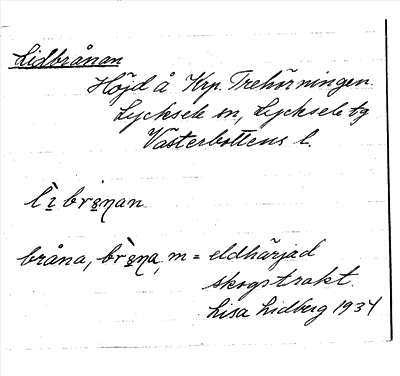 Lidbrånan
Höjd å Krp. Trehörningen
Lycksele sn, Lycksele tg
Västerbottens l.
bråna, m = eldhärjad
skogstrakt.
Lisa Lidberg 1934